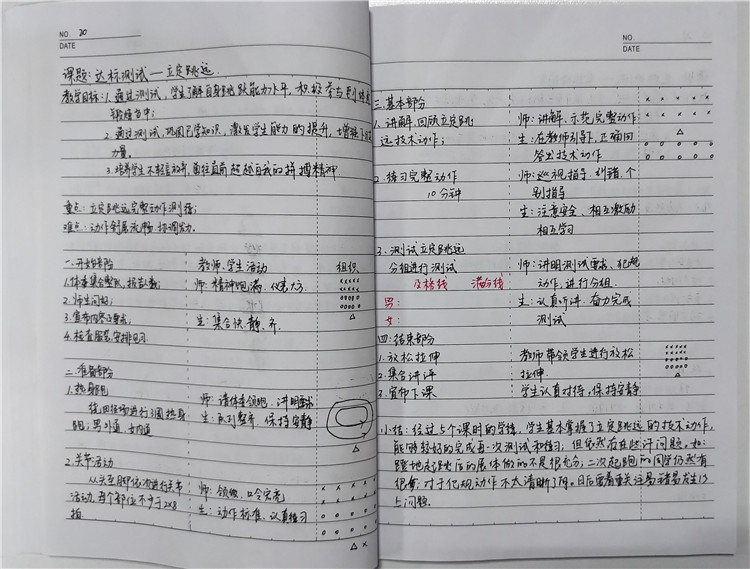 NO. 20
DATE
课题:达标测试—立定跳远
教学目标:1.通过测试,学生了解自身跳跃能力水平,积极参与到锻炼当中;
2.通过测试,巩固已学知识,激发学生能力的提升,增强下肢力量。
3.培养学生不轻言放弃,勇往直前超越自我的拼搏精神
重点:立定跳远完整动作测练;
难点:动作舒展流畅、协调发力。
一.开始部分 教师.学生活动 组织
1.体委集合整队,报告人数; 师:精神饱满、仪表大方
2.师生问好;
3.宣布内容及要求; 生:集合快.静.齐
4.检查服装,安排见习
二.准备部分
1.热身跑 师:请体委领跑,讲明要求
绕田径场进行3圈热身 生:队列整齐,保持安静
跑;男外道 女内道
2.关节活动
从头至脚依次进行关节 师:领做,口令宏亮
活动,每个部位不少于2x8 生:动作标准,认真练习
拍
NO.
DATE
三.基本部分
1.讲解.回顾立定跳 师:讲解、示范完整动作
远技术动作; 生:在教师引导下,正确回
答出技术动作
2.练习完整动作 师:巡视指导.纠错,个
10分钟 别指导
生:注意安全、相互激励
相互学习
3.测试立定跳远
分组进行测试 师:讲明测试要求、犯规
及格线 满分线 动作,进行分组.
男: 生:认真听讲.奋力完成
女: 测试
四.结束部分
1.放松拉伸 教师带领学生进行放松
2.集合讲评 拉伸.
3.宣布下课 学生认真对待,保持安静
小结:经过5个课时的学练,学生基本掌握了立定跳远的技术动作,
能够较好的完成每一次测试和练习;但仍然存在些许问题。如:
蹬地起跳后的展体做的不是很充分;二次起跳的同学仍然有
很多;对于犯规动作不太清晰了解。日后需着重关注易错易发生的
问题.